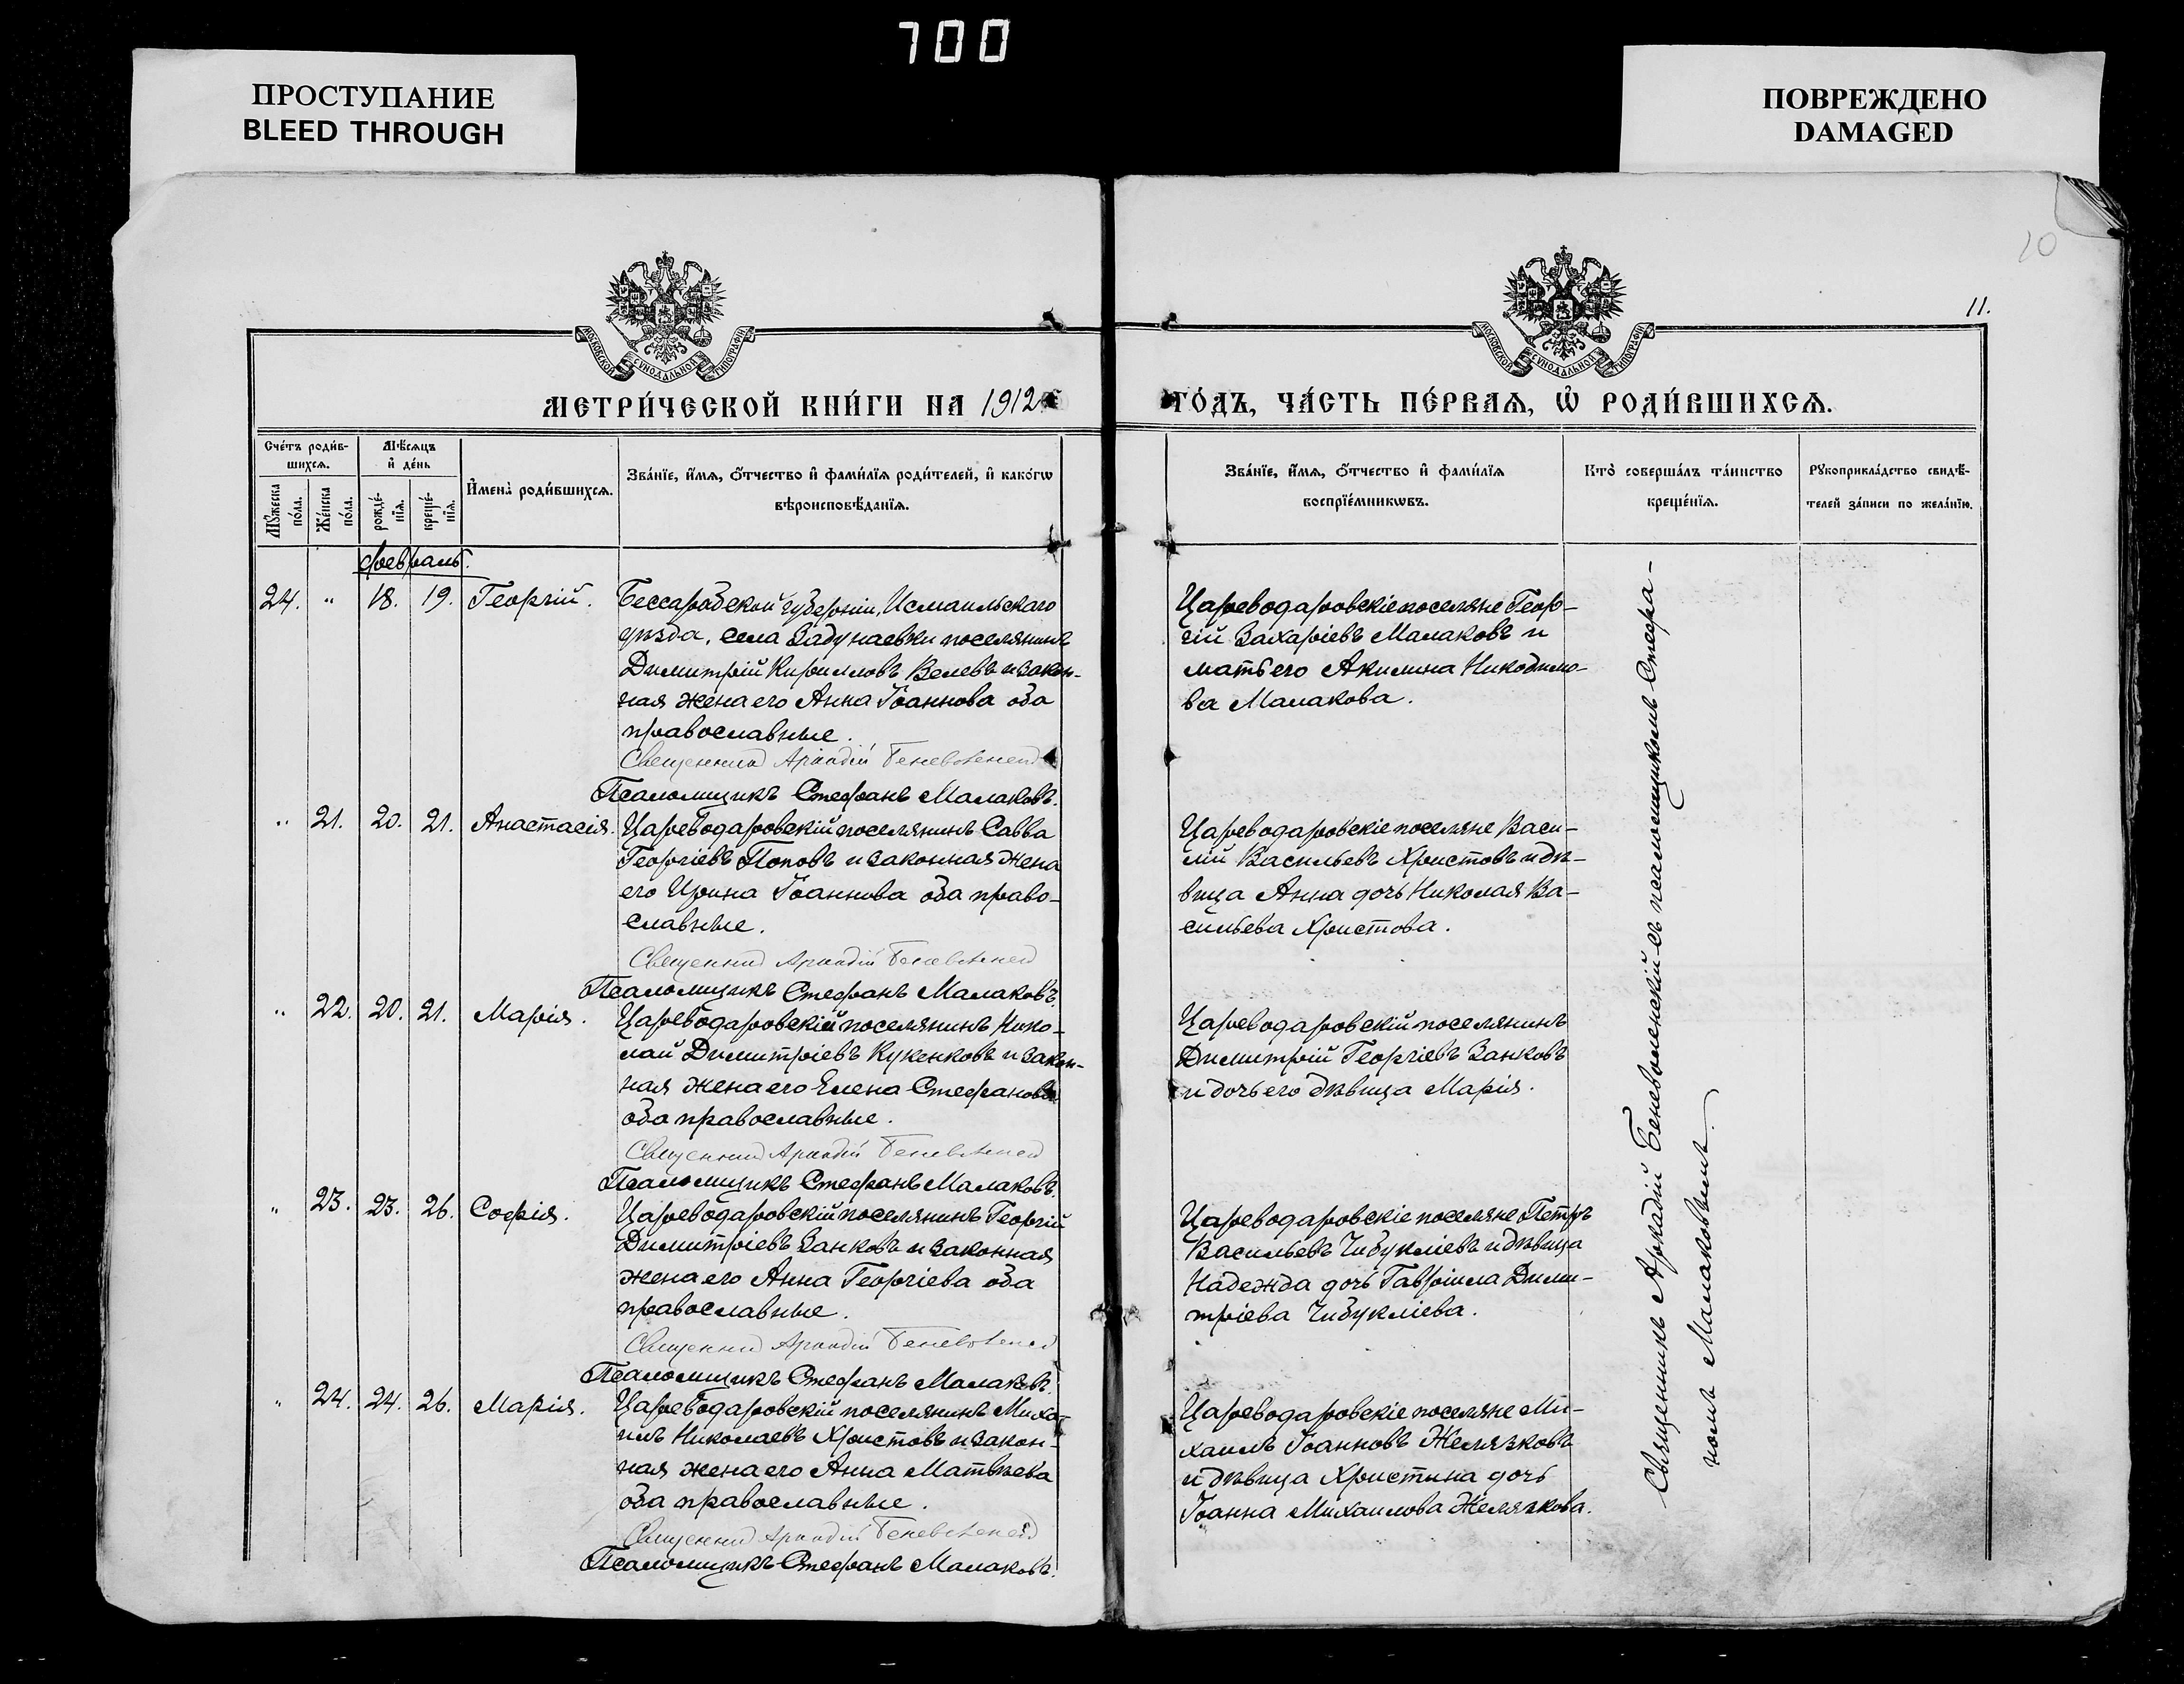 700
ПРОСТУПАНИЕ
BLEED THROUGH
ПОВРЕЖДЕНО
DAMAGED
10
11.
МОСКОВСКОЙ СѴНОДАЛЬНОЙ ТИПОГРАФІИ
МОСКОВСКОЙ СѴНОДАЛЬНОЙ ТИПОГРАФІИ
МЕТРИ́ЧЕСКОЙ КНИ́ГИ НА 1912
ГО́ДЪ, ЧА́СТЬ ПЕ́РВАѦ, Ѡ҆ РОДИ́ВШИХСѦ.
Сче́тъ роди́в-
шихсѧ.
Мѣ́сѧцъ
и҆ де́нь
Мꙋ́жеска
по́ла.
Же́нска
по́ла.
рожде́-
нїѧ.
креще́-
нїѧ.
И҆мена̀ роди́вшихсѧ.
Зва́нїе, и҆́мѧ, ѻ҆́тчество и҆ фами́лїѧ роди́телей, и҆ како́гѡ
вѣроисповѣ́данїѧ.
Зва́нїе, и҆́мѧ, ѻ҆́тчество и҆ фами́лїѧ
воспрїе́мникѡвъ.
Кто̀ соверша́лъ та́инство
креще́нїѧ.
Рꙋкоприкла́дство свидѣ́-
телей за́писи по жела́нїю.
февраль.
24. " 18. 19. Георгій.
Бессарабской губерніи, Исмаильскаго
уѣзда, села Задунаевки поселянинъ
Димитрій Кирилловъ Велевъ и закон-
ная жена его Анна Іоаннова оба
православные.
Священникъ Аркадій Беневоленскій
Псаломщикъ Стефанъ Малаковъ.
Цареводаровскіе поселяне Геор-
гій Захаріевъ Малаковъ и
мать его Акилина Никодимо-
ва Малакова.
" 21. 20. 21. Анастасія.
Цареводаровскій поселянинъ Савва
Георгіевъ Поповъ и законная жена
его Ирина Іоаннова оба право-
славные.
Священникъ Аркадій Беневоленскій
Псаломщикъ Стефанъ Малаковъ.
Цареводаровскіе поселяне Васи-
лій Васильевъ Христовъ и дѣ-
вица Анна дочь Николая Ва-
сильева Христова.
" 22. 20. 21. Марія.
Цареводаровскій поселянинъ Нико-
лай Димитріевъ Кукенковъ и закон-
ная жена его Елена Стефанова
оба православные.
Священникъ Аркадій Беневоленскій
Псаломщикъ Стефанъ Малаковъ.
Цареводаровскій поселянинъ
Димитрій Георгіевъ Занковъ
и дочь его дѣвица Марія.
" 23. 23. 26. Софія.
Цареводаровскій поселянинъ Георгій
Димитріевъ Занковъ и законная
жена его Анна Георгіева оба
православные.
Священникъ Аркадій Беневоленскій
Псаломщикъ Стефанъ Малаковъ.
Цареводаровскіе поселяне Петръ
Васильевъ Чибукліевъ и дѣвица
Надежда дочь Гавріила Дими-
тріева Чибукліева.
" 24. 24. 26. Марія.
Цареводаровскій поселянинъ Миха-
илъ Николаевъ Христовъ и закон-
ная жена его Анна Матвѣева
оба православные.
Священникъ Аркадій Беневоленскій
Псаломщикъ Стефанъ Малаковъ.
Цареводаровскіе поселяне Ми-
хаилъ Іоанновъ Желязковъ
и дѣвица Христина дочь
Іоанна Михаилова Желязкова.
Священникъ Аркадій Беневоленскій съ псаломщикомъ Стефа-
номъ Малаковымъ.